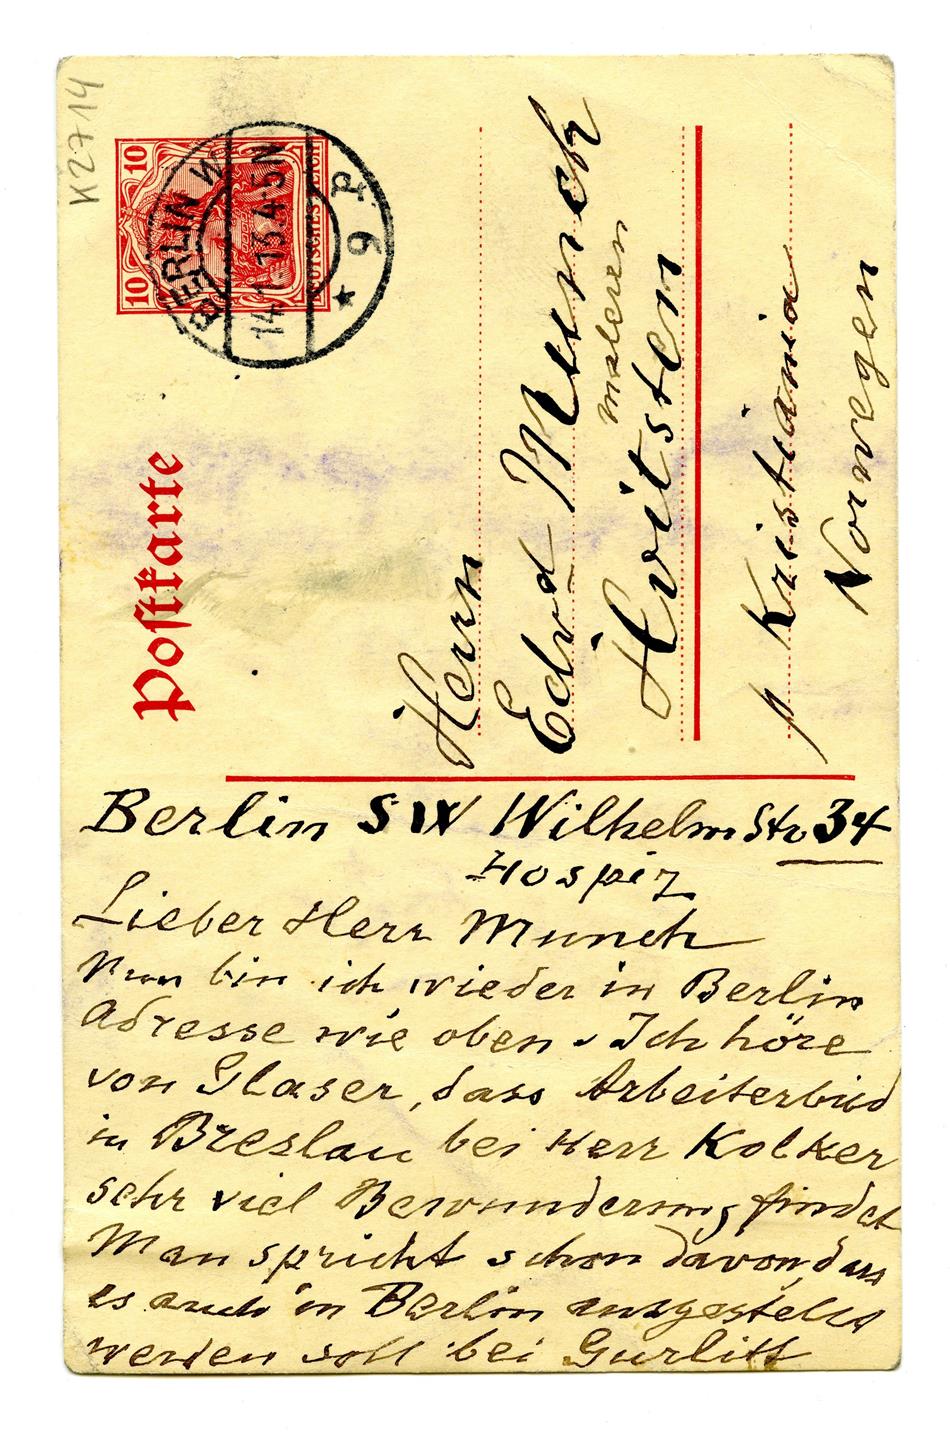 K2714
10 10
DEUTSCHES REICH
BERLIN W
14.1.13.4-5N
* 9 P
Postkarte
Herrn
Edvd Munch
maleren
Hvitsten
p Kristiania
Norwegen
Berlin SW Wilhelm Str 34
Hospiz
Lieber Herr Munch
Nun bin ich wieder in Berlin
Adresse wie oben. Ich höre
von Glaser, dass Arbeiterbild
in Breslau bei Herr Kolker
sehr viel Bewunderung findet
Man spricht schon davon, dass
es auch in Berlin ausgestellt
werden soll bei Gurlitt